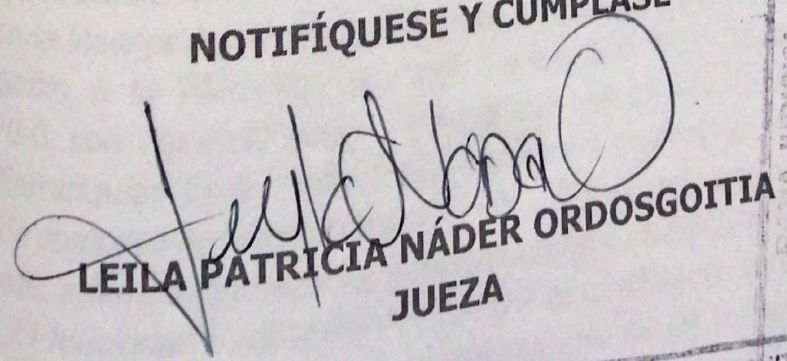 NOTIFÍQUESE Y CÚMPLASE
LEILA PATRICIA NÁDER ORDOSGOITIA
JUEZA